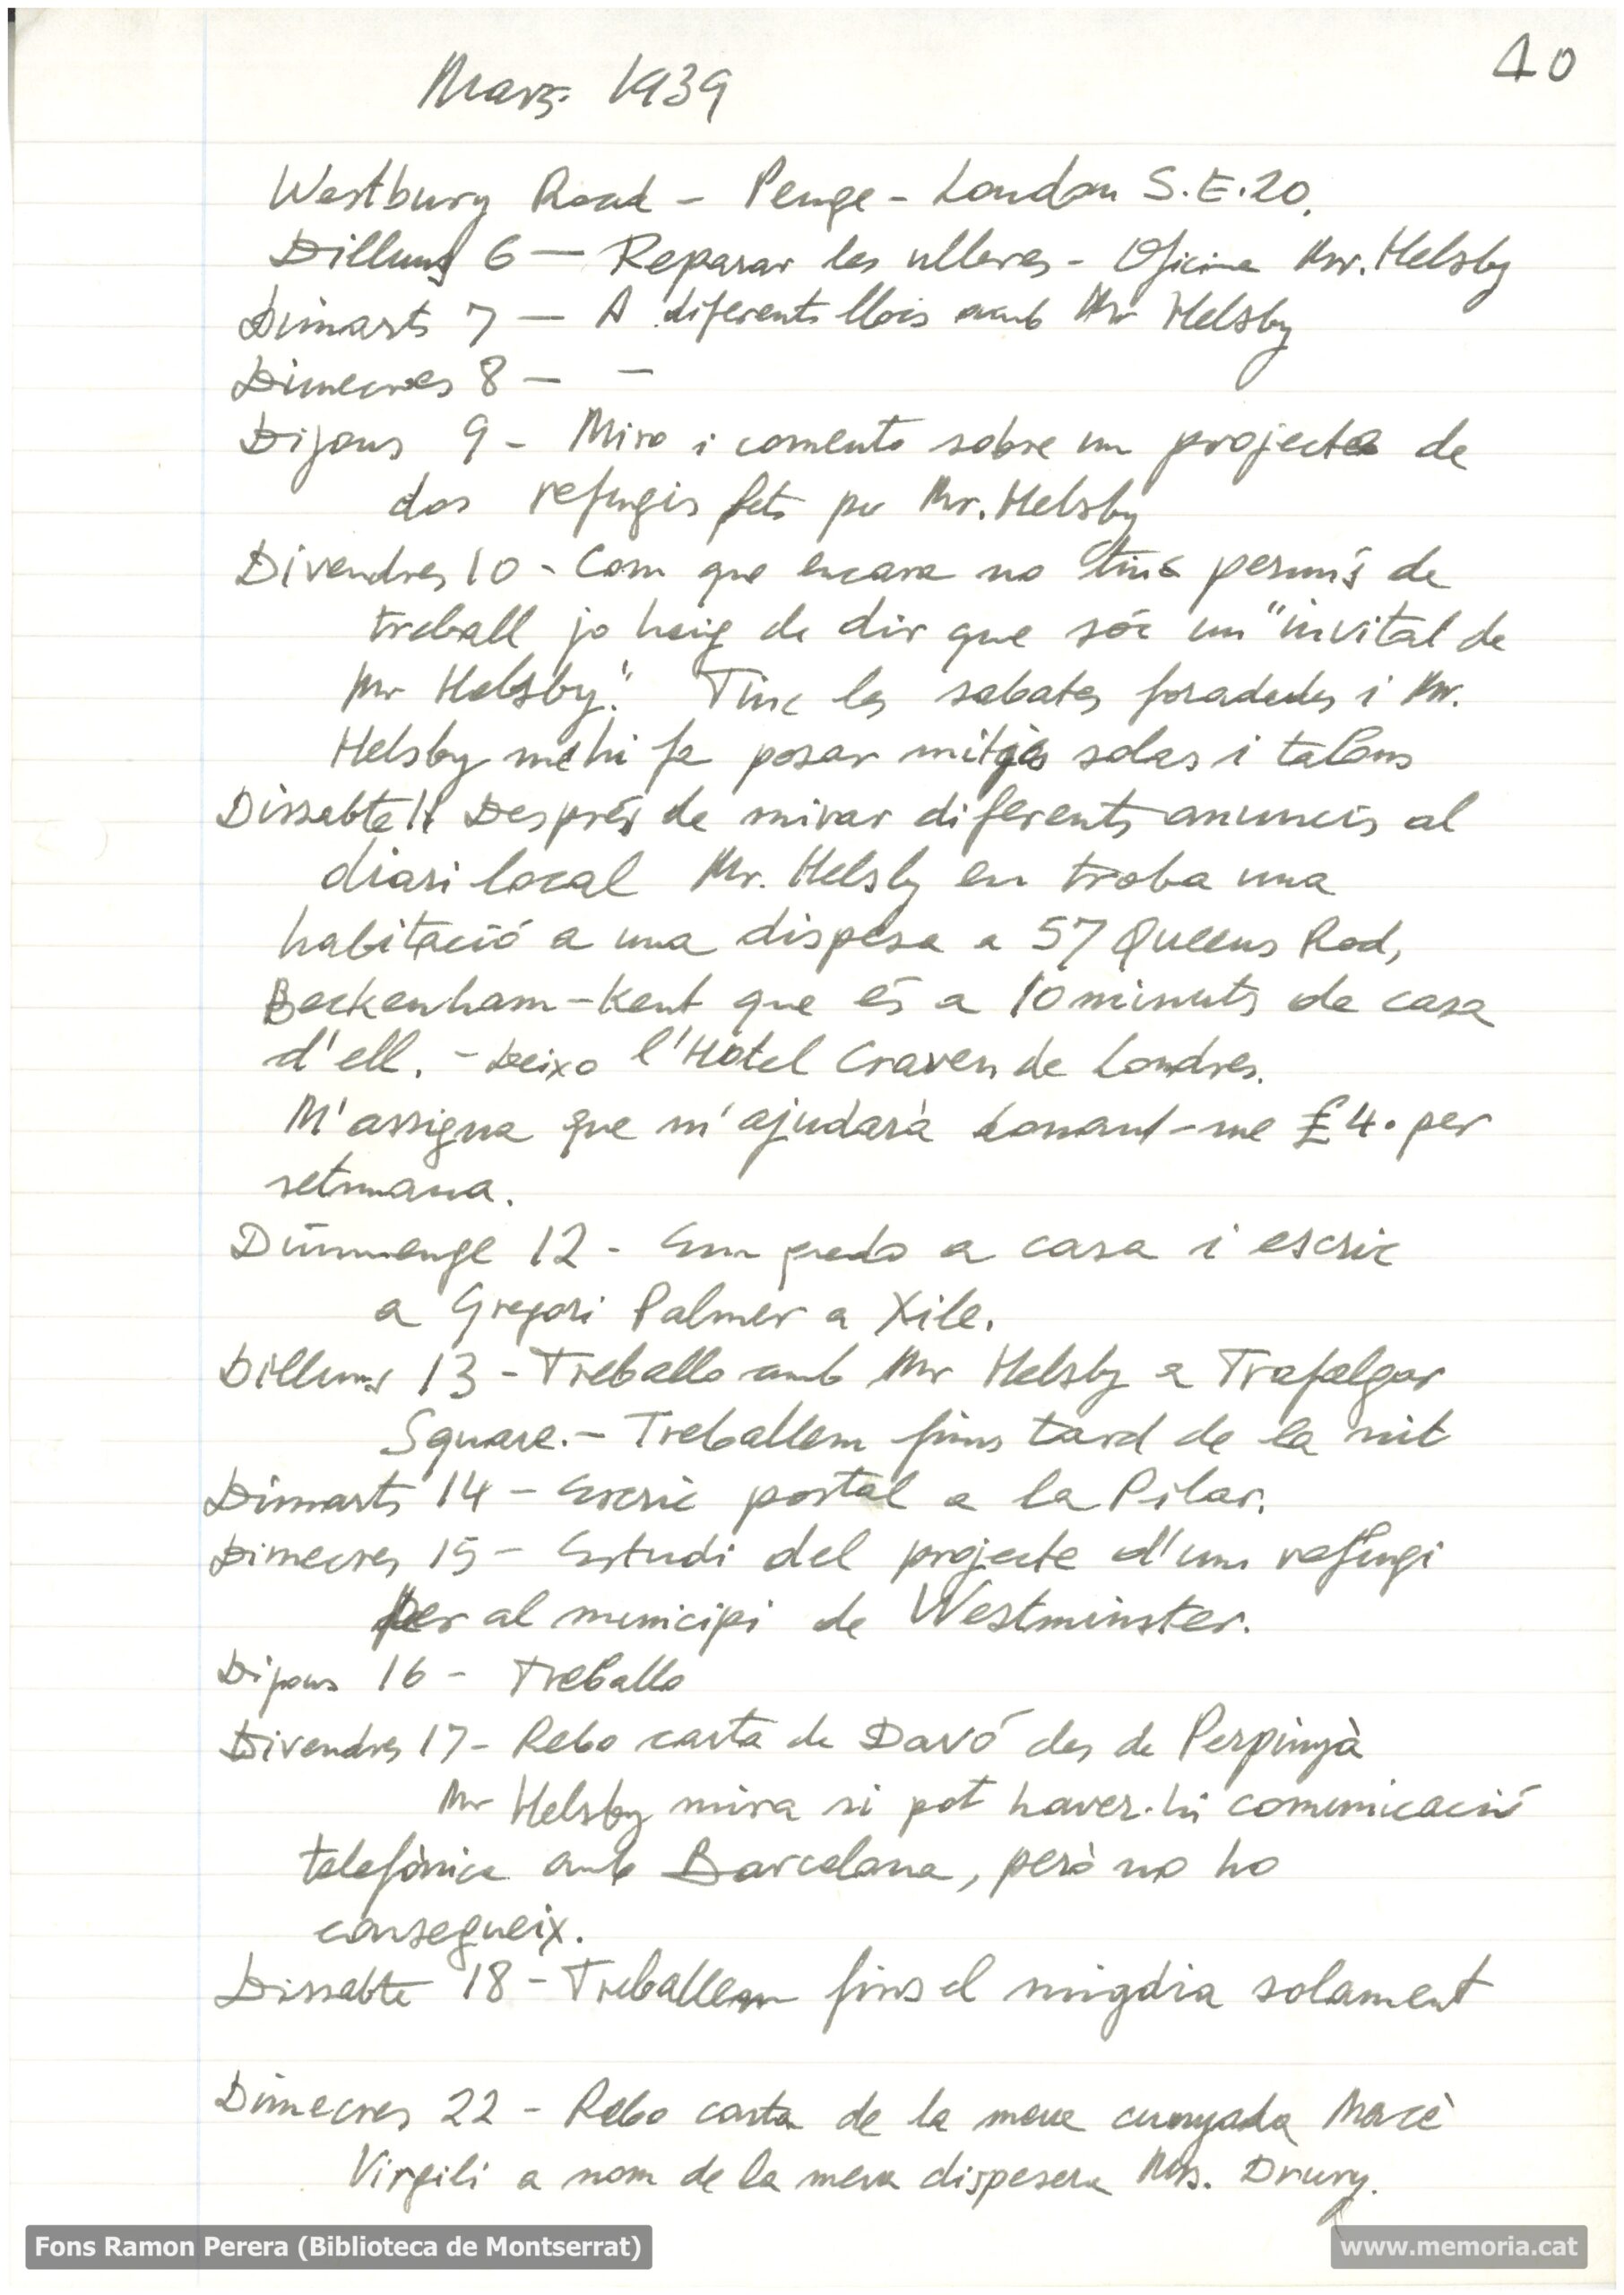 40
Març 1939
Westbury Road - Penge - London S.E.20.
Dilluns 6 — Reparar les ulleres - Oficina Mr. Helsby
Dimarts 7 — A diferents llocs amb Mr Helsby
Dimecres 8 — —
Dijous 9 - Miro i comento sobre un projecte de
dos refugis fets per Mr. Helsby
Divendres 10 - Com que encara no tinc permís de
treball jo haig de dir que sóc un "invitat de
Mr Helsby". Tinc les sabates foradades i Mr.
Helsby me hi fa posar mitges soles i talons
Dissabte 11 Després de mirar diferents anuncis al
diari local Mr. Helsby en troba una
habitació a una dispesa a 57 Queens Rod,
Beckenham-Kent que és a 10 minuts de casa
d'ell. - Deixo l'Hotel Craven de Londres.
M'assigna que m'ajudarà donant-me £4. per
setmana.
Diumenge 12 - Em quedo a casa i escric
a Gregori Palmer a Xile.
Dilluns 13 - Treballo amb Mr Helsby a Trafalgar
Square. - Treballem fins tard de la nit
Dimarts 14 - Escric postal a la Pilar.
Dimecres 15 - Estudi del projecte d'un refugi
per al municipi de Westminster.
Dijous 16 - Treballo
Divendres 17 - Rebo carta de Davó des de Perpinyà
Mr Helsby mira si pot haver-hi comunicació
telefònica amb Barcelona, però no ho
consegueix.
Dissabte 18 - Treballem fins el migdia solament
Dimecres 22 - Rebo carta de la meva cunyada Mercè
Virgili a nom de la meva dispesera Mrs. Drury.
Fons Ramon Perera (Biblioteca de Montserrat)
www.memoria.cat